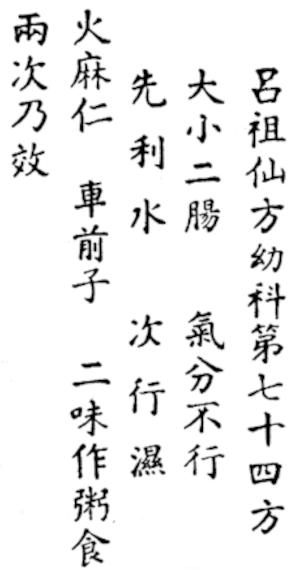 呂祖仙方幼科第七十四方
大小二腸 氣分不行
先利水 次行濕
火麻仁 車前子 二味作粥食
兩次乃效